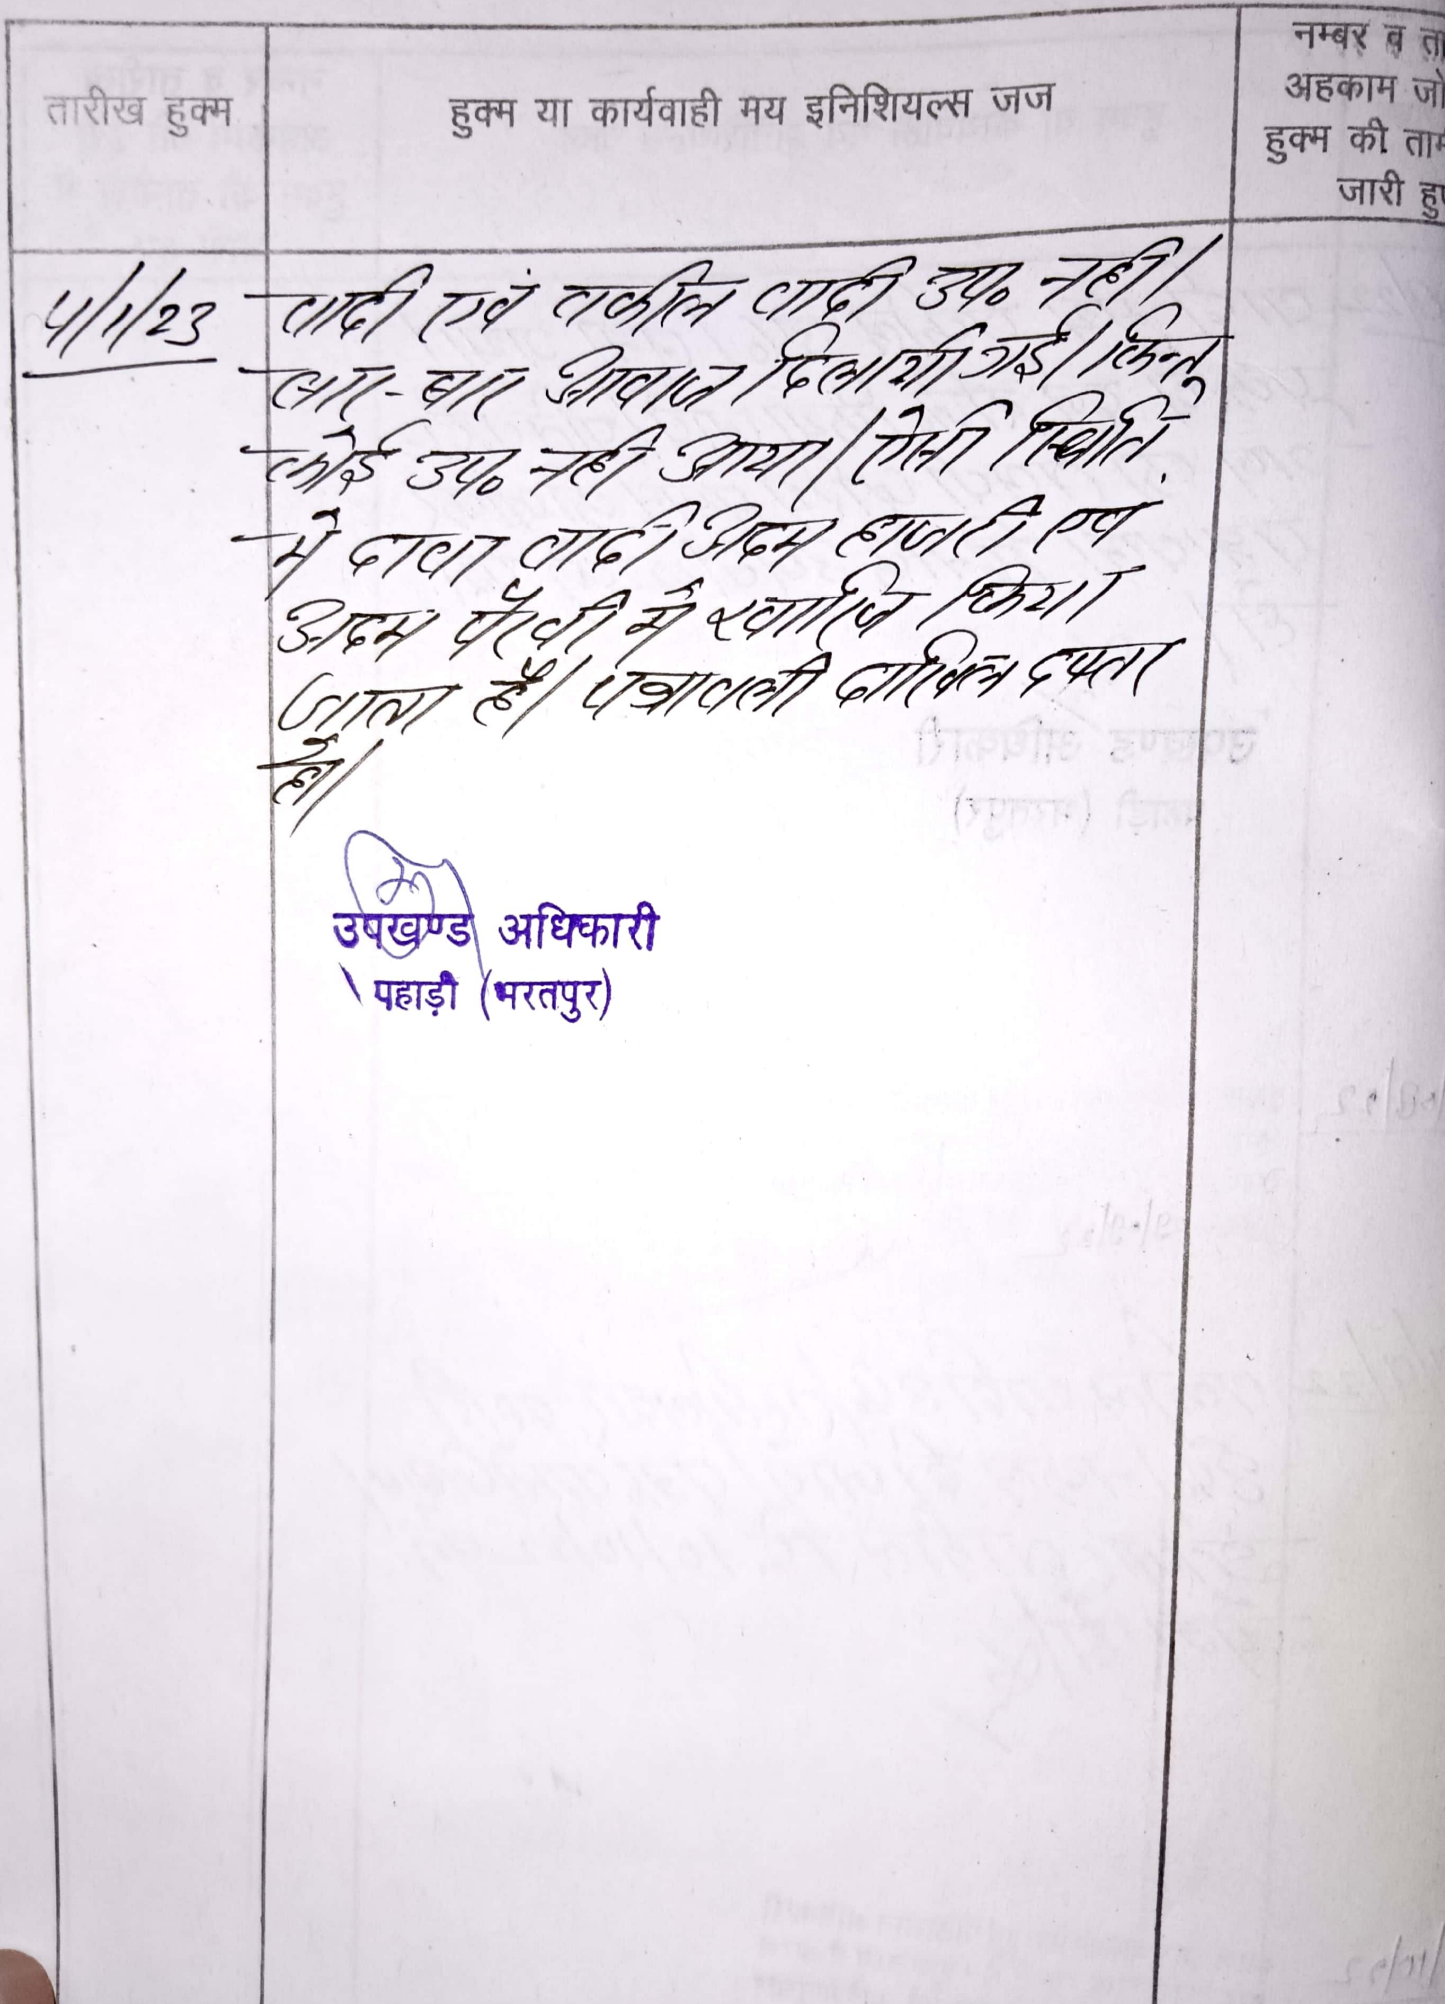 तारीख हुक्म
हुक्म या कार्यवाही मय इनिशियल्स जज
नम्बर व ता
अहकाम जो
हुक्म की ताम
जारी हुए
4/1/23
वादी एवं वकील वादी उप० नही।
बार-बार आवाज दिलायी गई। किन्तु
कोई उप० नही आया। ऐसी स्थिति
मे दावा वादी अदम हाजरी एवं
अदम पैरवी में खारिज किया
जाता है। पत्रावली दाखिल दफ्तर
हो।
उपखण्ड अधिकारी
पहाड़ी (भरतपुर)